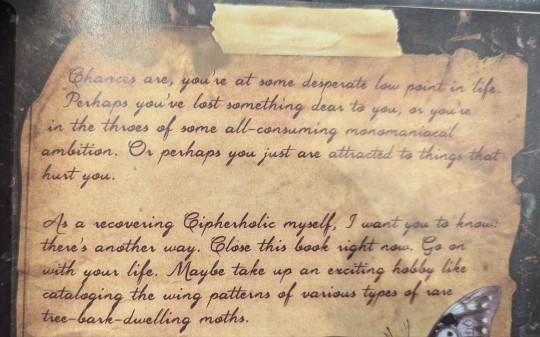 Chances are, you're at some desperate low point in life.
Perhaps you've lost something dear to you, or you're
in the throes of some all-consuming monomaniacal
ambition. Or perhaps you just are attracted to things that
hurt you.
As a recovering Cipherholic myself, I want you to know:
there's another way. Close this book right now. Go on
with your life. Maybe take up an exciting hobby like
cataloging the wing patterns of various types of rare
tree-bark-dwelling moths.